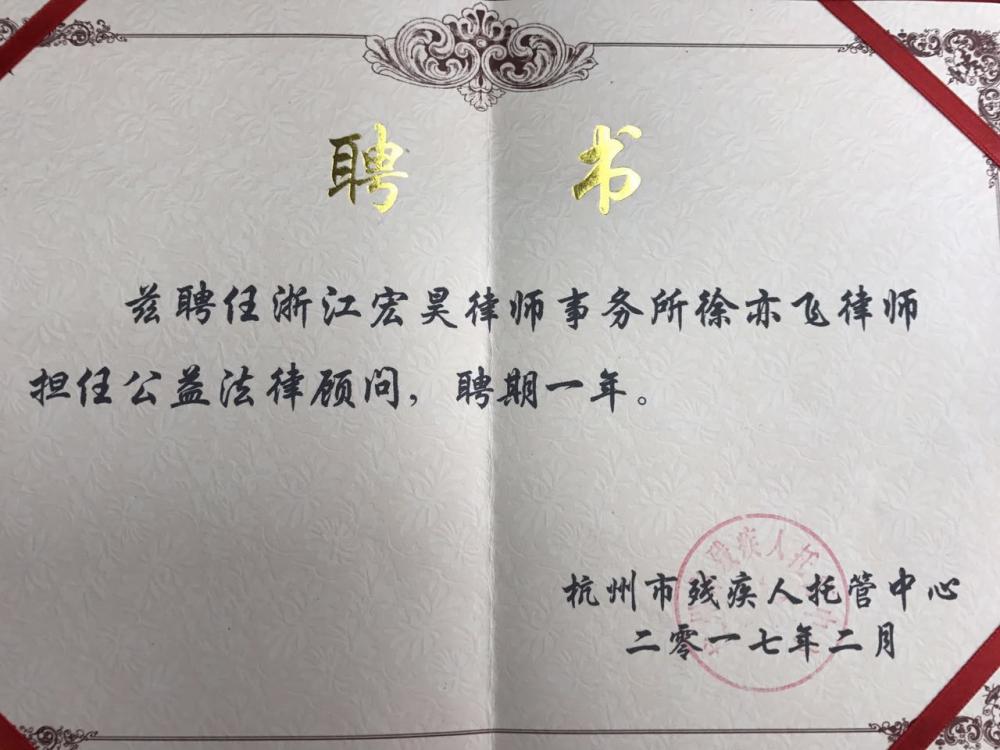 聘 书
兹聘任浙江宏昊律师事务所徐亦飞律师
担任公益法律顾问，聘期一年。
杭州市残疾人托管中心
二零一七年二月
残疾人托